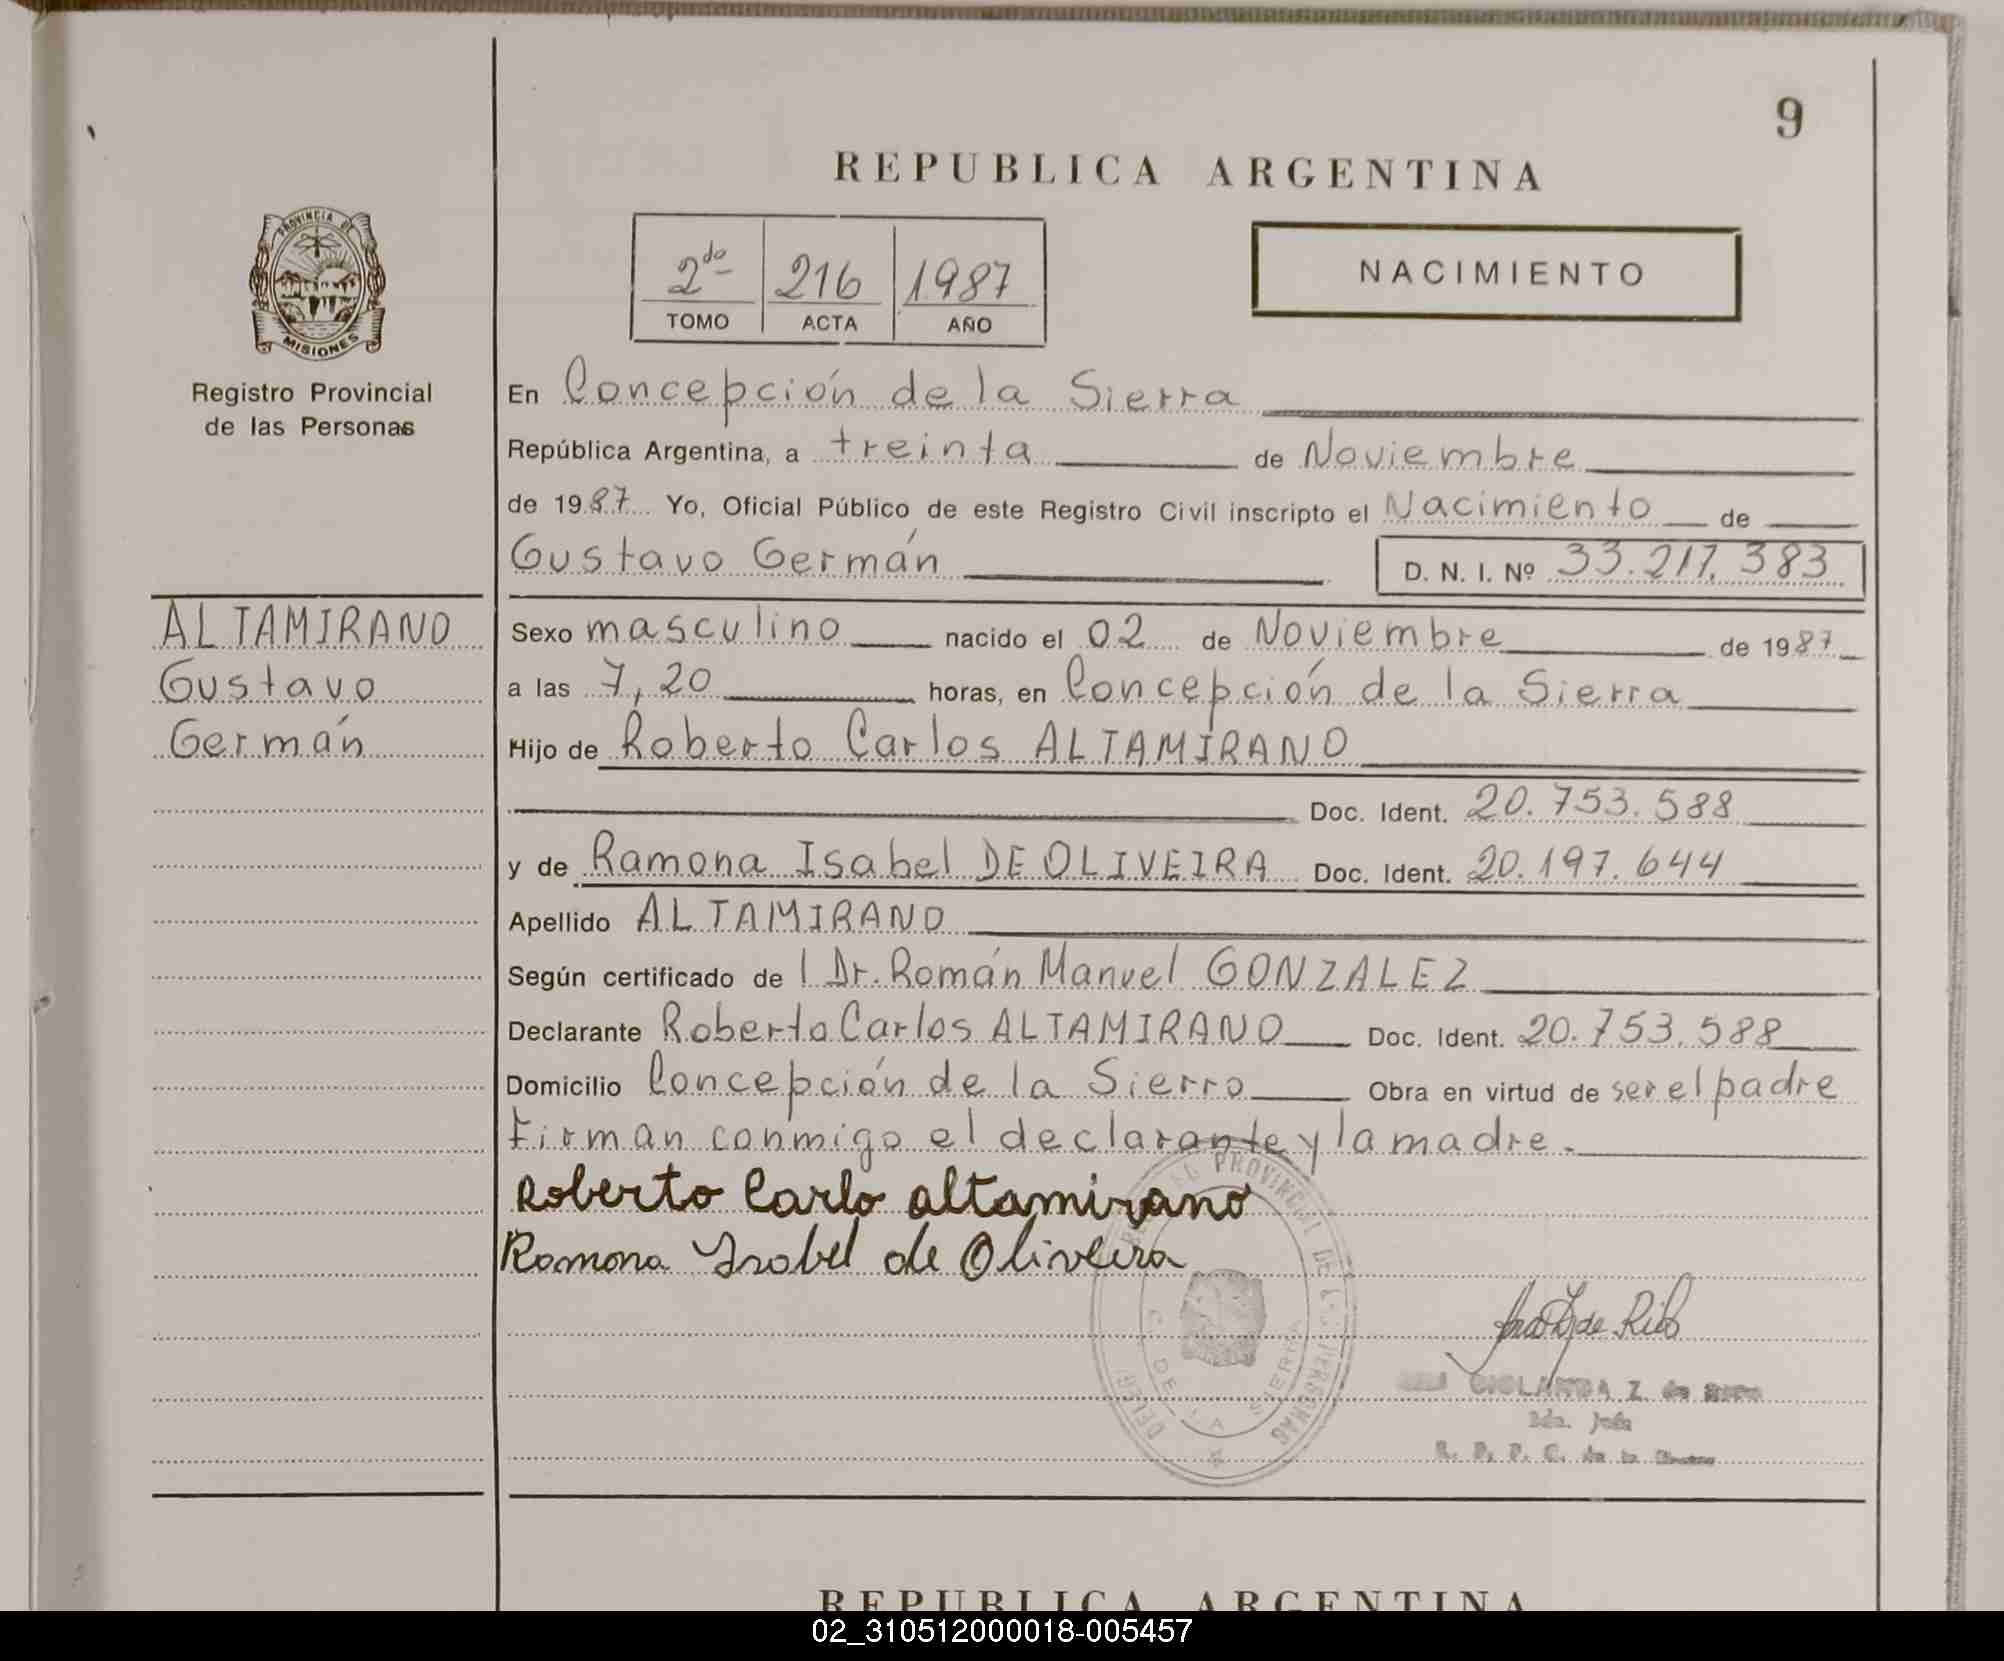 9
REPUBLICA ARGENTINA
PROVINCIA DE
MISIONES
Registro Provincial
de las Personas
2do 216 1987
TOMO ACTA AÑO
NACIMIENTO
En Concepción de la Sierra
República Argentina, a treinta de Noviembre
de 1987 Yo, Oficial Público de este Registro Civil inscripto el Nacimiento de
Gustavo Germán D. N. I. Nº 33.217.383
ALTAMIRANO
Gustavo
Germán
Sexo masculino nacido el 02 de Noviembre de 1987
a las 7,20 horas, en Concepción de la Sierra
Hijo de Roberto Carlos ALTAMIRANO
Doc. Ident. 20.753.588
y de Ramona Isabel DE OLIVEIRA Doc. Ident. 20.197.644
Apellido ALTAMIRANO
Según certificado de l Dr. Román Manuel GONZALEZ
Declarante Roberto Carlos ALTAMIRANO Doc. Ident. 20.753.588
Domicilio Concepción de la Sierra Obra en virtud de ser el padre
Firman conmigo el declarante y la madre.
Roberto Carlo altamirano
Ramona Isabel de Oliveira
PROVINCIAL DE
DE LA SIERRA
Z. de
R. P. P. C. de la
REPUBLICA ARGENTINA
02_310512000018-005457